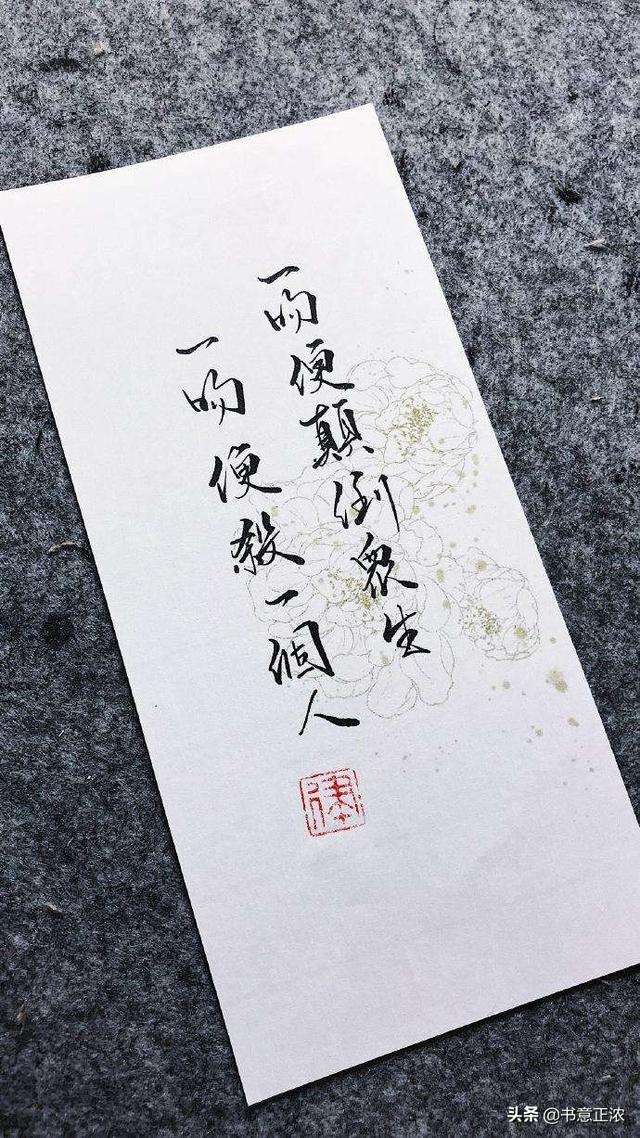 一吻便顛倒眾生
一吻便殺一個人
头条 @书意正浓